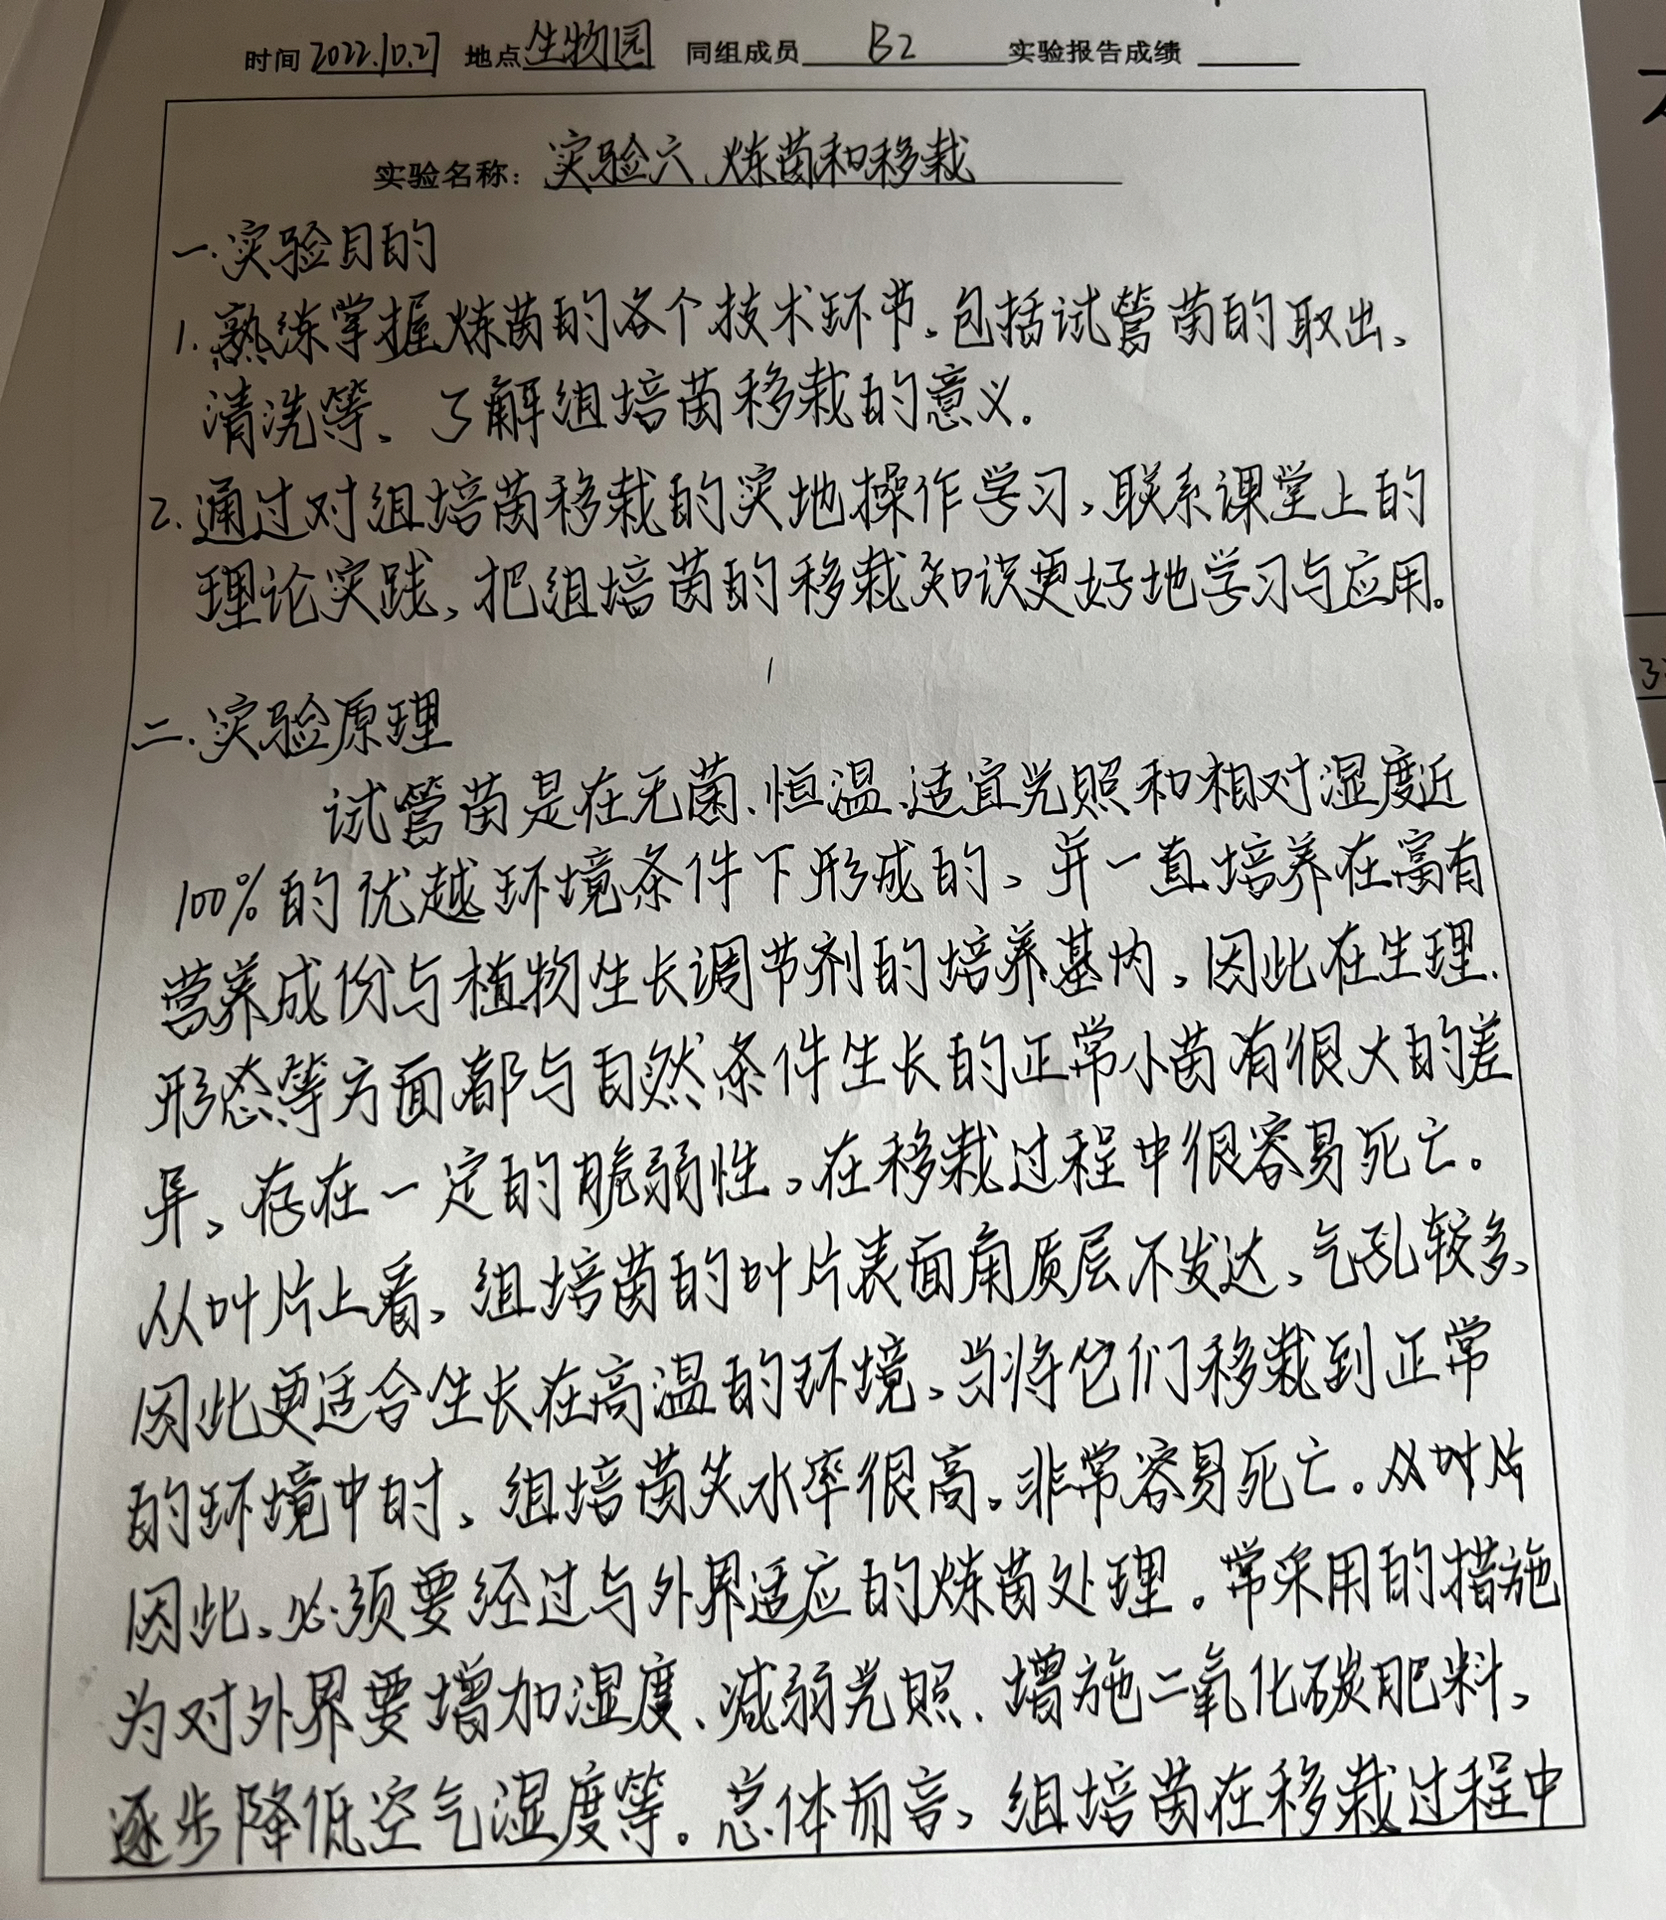 时间 2022.10.27 地点 生物园 同组成员 B2 实验报告成绩
实验名称: 实验六、炼苗和移栽
一.实验目的
1.熟练掌握炼苗的各个技术环节,包括试管苗的取出、
清洗等,了解组培苗移栽的意义.
2.通过对组培苗移栽的实地操作学习,联系课堂上的
理论实践,把组培苗的移栽知识更好地学习与应用。
二.实验原理
试管苗是在无菌、恒温、适宜光照和相对湿度近
100%的优越环境条件下形成的,并一直培养在富有
营养成份与植物生长调节剂的培养基内,因此在生理、
形态等方面都与自然条件生长的正常小苗有很大的差
异,存在一定的脆弱性,在移栽过程中很容易死亡。
从叶片上看,组培苗的叶片表面角质层不发达,气孔较多,
因此更适合生长在高温的环境,当将它们移栽到正常
的环境中时,组培苗失水率很高,非常容易死亡.从叶片
因此,必须要经过与外界适应的炼苗处理。常采用的措施
为对外界要增加湿度、减弱光照、增施二氧化碳肥料,
逐步降低空气湿度等。总体而言,组培苗在移栽过程中